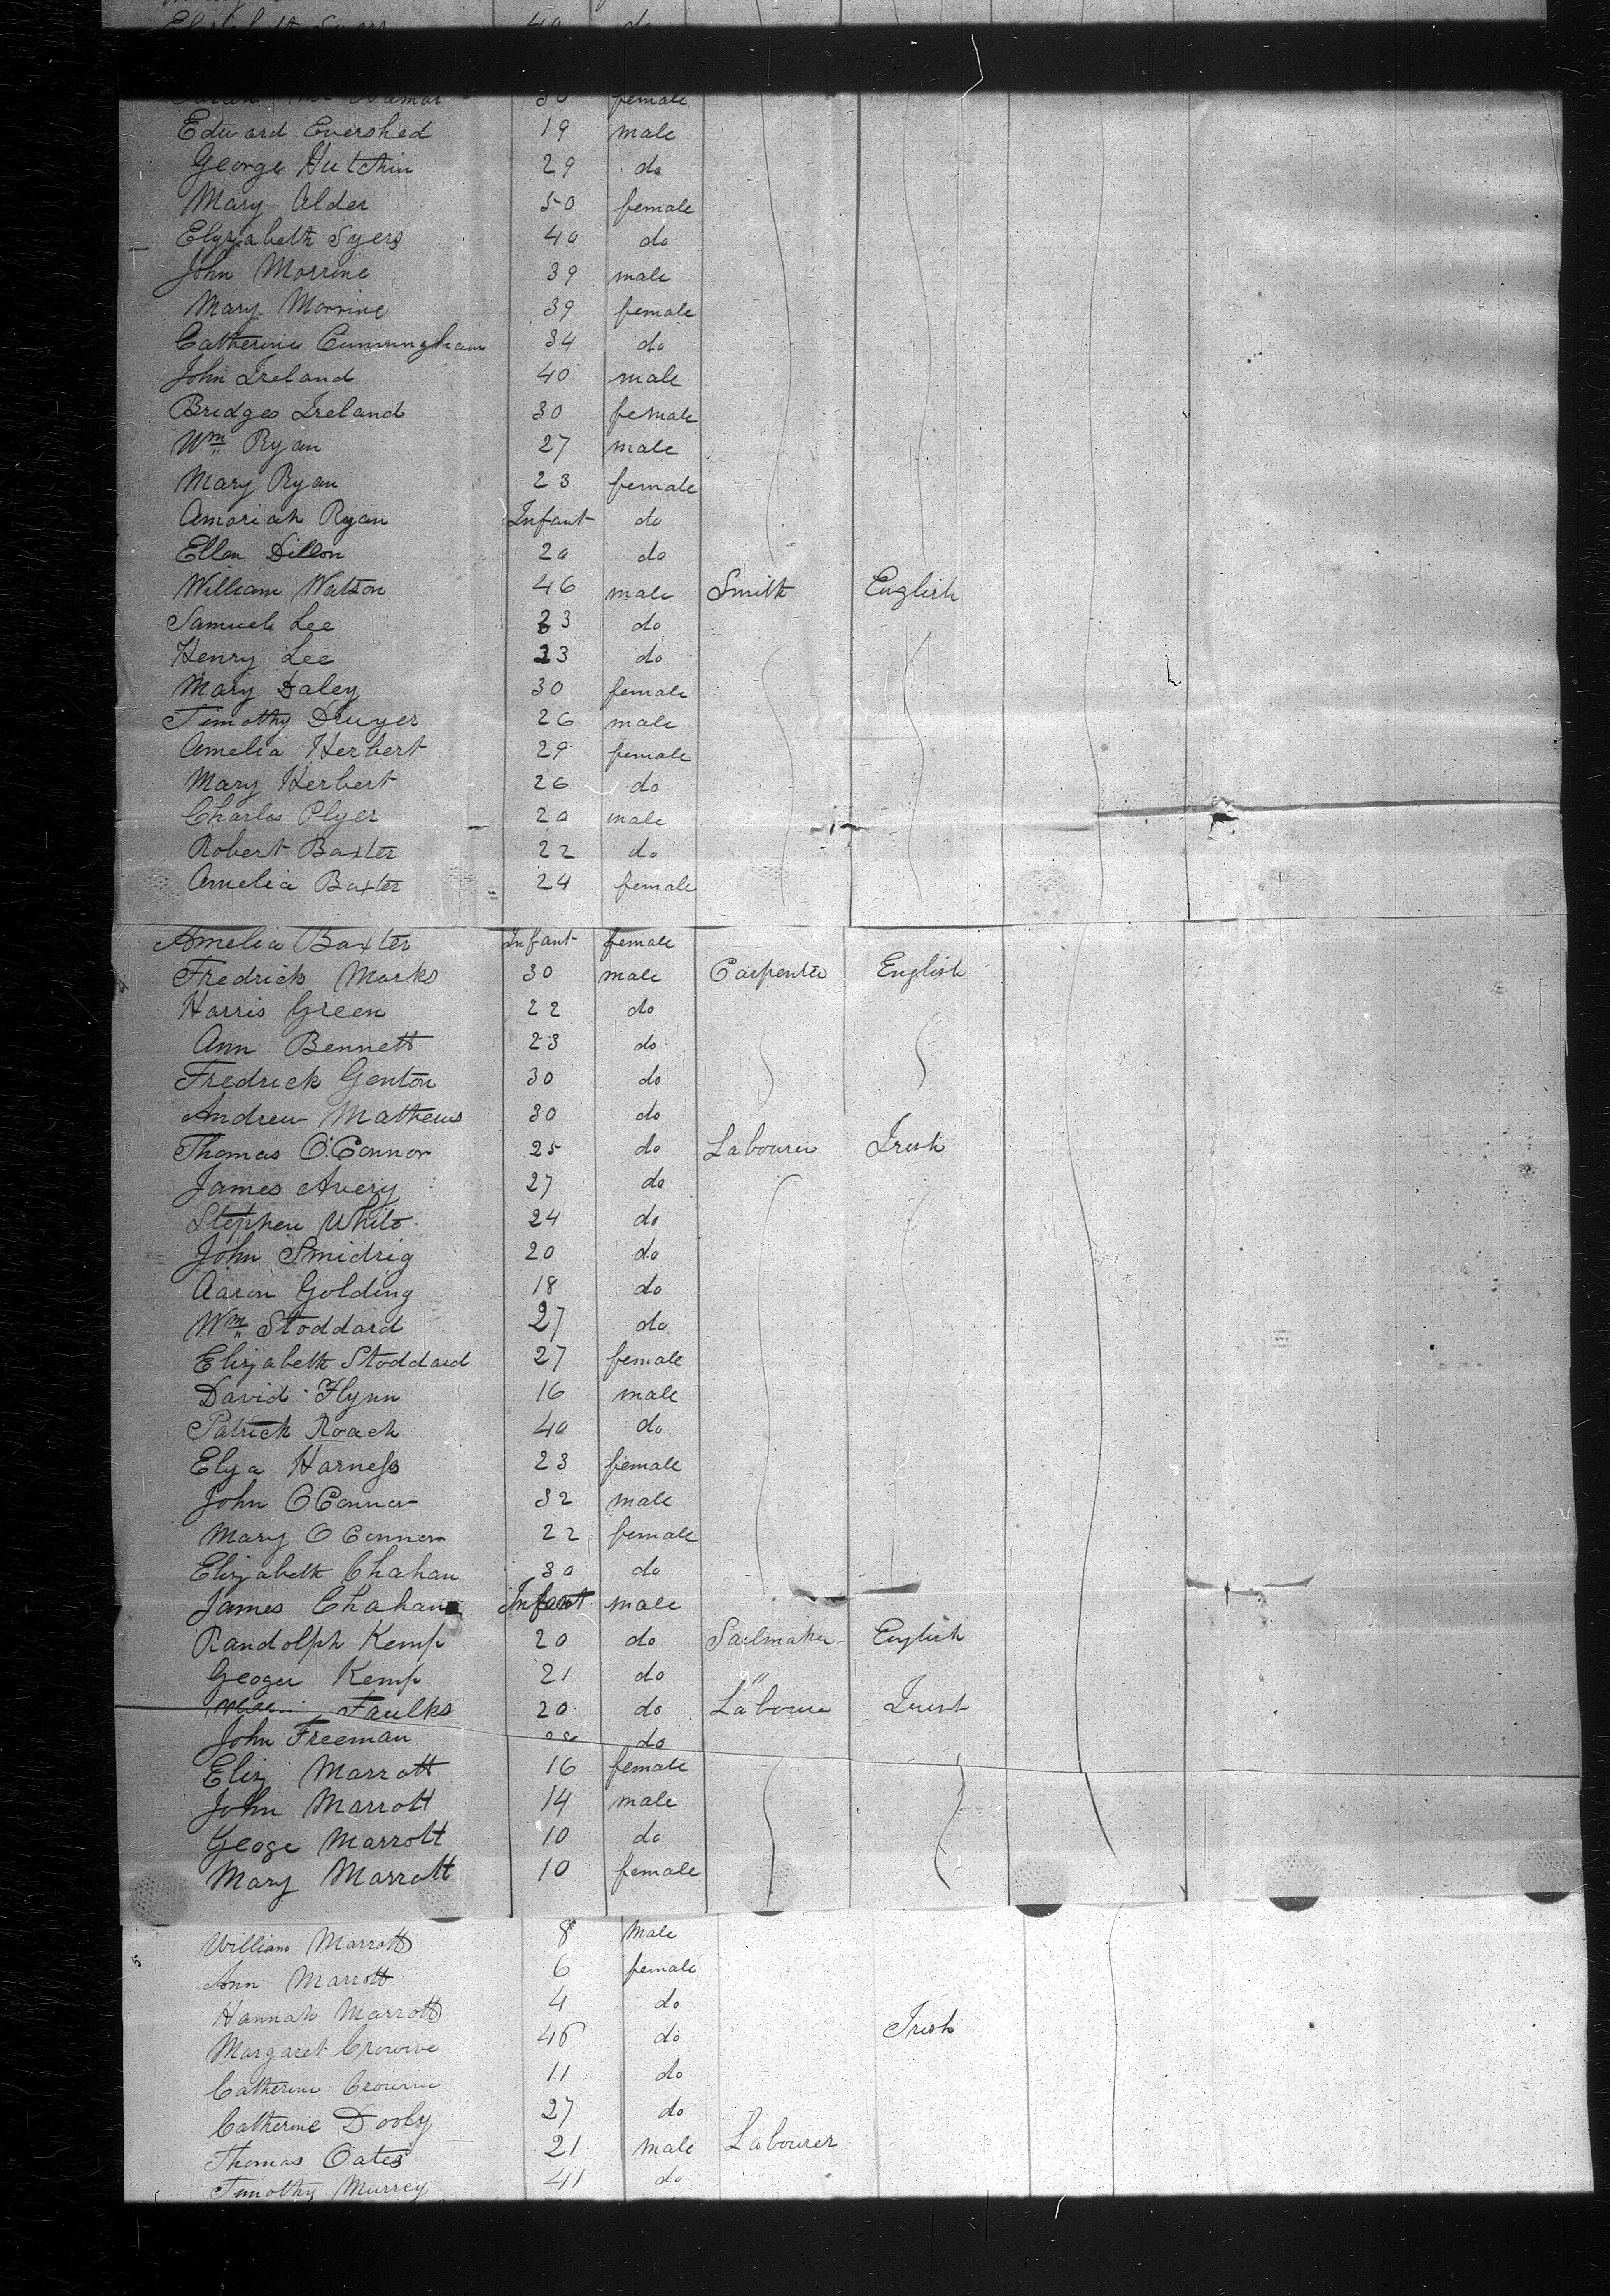 Elizabeth Syers 40 do
30 female
Edward Evershed 19 male
George Hutchin 29 do
Mary Alder 50 female
Elyzabeth Syers 40 do
John Morrine 39 male
Mary Morrine 39 female
Catherine Cunningham 34 do
John Ireland 40 male
Bridges Ireland 30 female
Wm Ryan 27 male
Mary Ryan 23 female
Amariah Ryan Infant do
Ellen Dillon 20 do
William Watson 46 male Smith English
Samuel Lee 23 do
Henry Lee 23 do
Mary Daley 30 female
Timothy Druyer 26 male
Amelia Herbert 29 female
Mary Herbert 26 do
Charles Plyer 20 male
Robert Baxter 22 do
Amelia Baxter 24 female
Amelia Baxter Infant female
Fredrick Marks 30 male Carpenter English
Harris Green 22 do
Ann Bennett 23 do
Fredrick Genton 30 do
Andrew Mathews 30 do
Thomas O'Connor 25 do Labourer Irish
James Avery 27 do
Stephen White 24 do
John Smidrig 20 do
Aaron Golding 18 do
Wm Stoddard 27 do
Elizabeth Stoddard 27 female
David Flynn 16 male
Patrick Roach 40 do
Elya Harness 23 female
John O Connor 32 male
Mary O Connor 22 female
Elizabeth Chahan 30 do
James Chahan Infant male
Randolph Kemp 20 do Sailmaker English
Geoger Kemp 21 do "
Faulks 20 do Labourer Irish
John Freeman do
Eliz Marrott 16 female
John Marrott 14 male
Geoge Marrott 10 do
Mary Marrott 10 female
William Marrott 8 Male
Ann Marrott 6 female
Hannah Marrott 4 do
Margaret Crowine 46 do Irish
Catherine Crowine 11 do
Catherine Dooly 27 do
Thomas Oates 21 male Labourer
Timothy Murrey 41 do